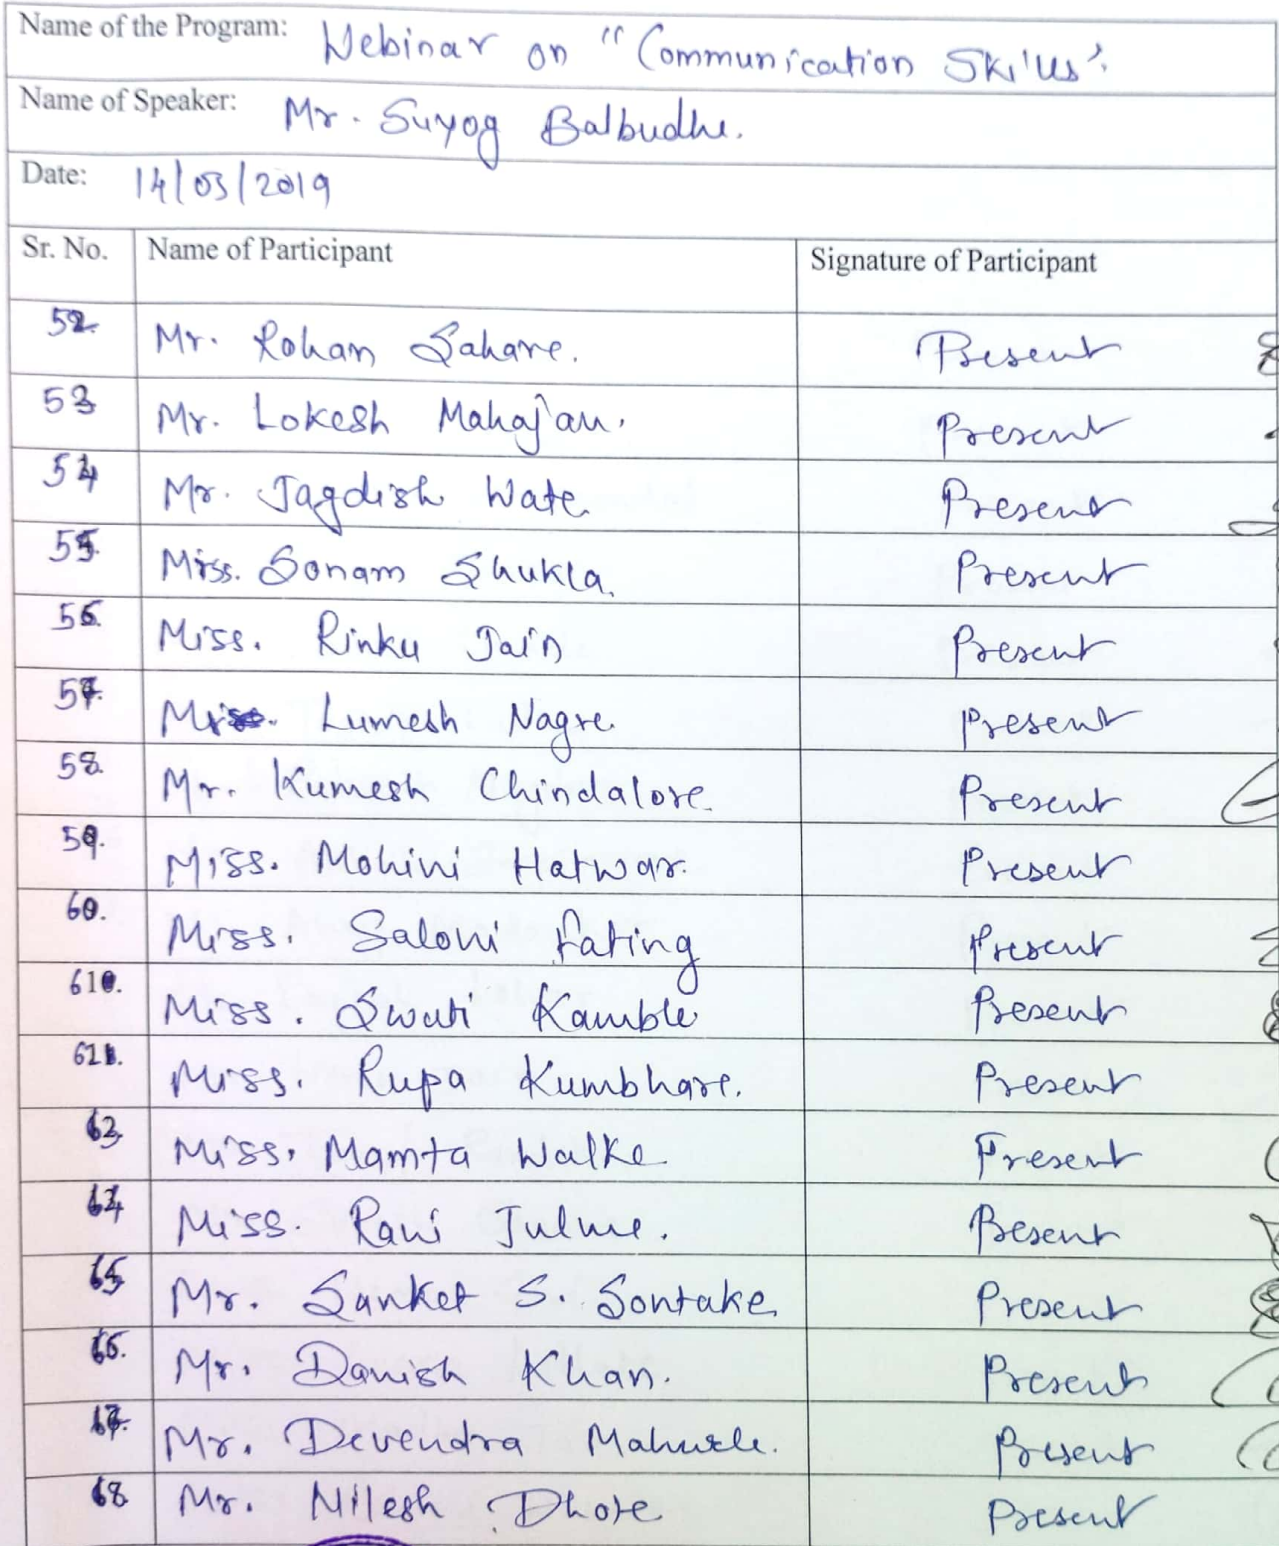 Name of the Program: Webinar on "Communication Skills".
Name of Speaker: Mr. Suyog Balbudhe.
Date: 14/03/2019
Sr. No. Name of Participant Signature of Participant
52. Mr. Rohan Sahare. Present
53 Mr. Lokesh Mahajan. Present
54 Mr. Jagdish Wate. Present
55. Miss. Sonam Shukla. Present
56. Miss. Rinku Jain Present
57. Lumesh Nagre. Present
58. Mr. Kumesh Chindalore. Present
59. Miss. Mohini Hatwar. Present
60. Miss. Saloni Fating Present
61. Miss. Swati Kamble Present
62. Miss. Rupa Kumbhare. Present
63 Miss. Mamta Walke Present
64 Miss. Rani Julme. Present
65 Mr. Sanket S. Sontake. Present
66. Mr. Danish Khan. Present
67. Mr. Devendra Present
68 Mr. Nilesh Dhote Present